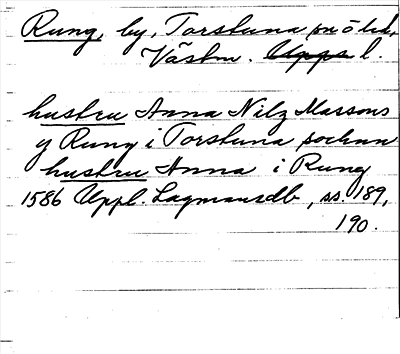 Rung, by, Torstuna sn o hd,
Västm. Upps l.
hustru Anna Nilz Massons
y Rung i Torstuna sochan
hustru Anna i Rung
1586 Uppl. Lagmansdb, ss. 189,
190.